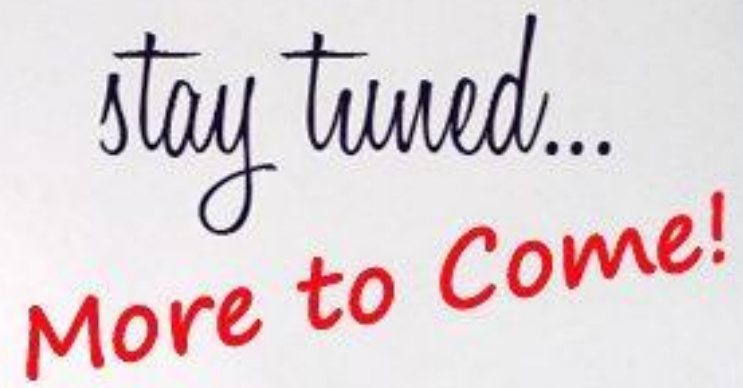 stay tuned...
More to Come!